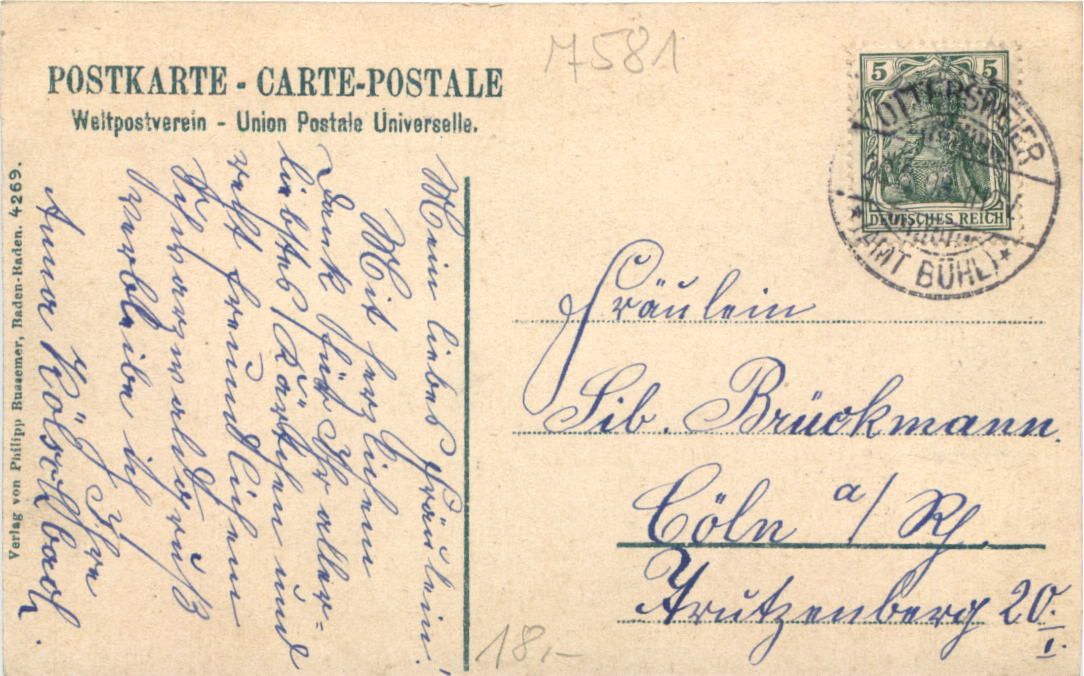 7581
POSTKARTE - CARTE-POSTALE
Weltpostverein - Union Postale Universelle.
5 5
DEUTSCHES REICH
OTTERSWEIER
★ (AMT BÜHL) ★
Mein liebes Fräulein!
Mit herzlichem
Dank für Ihr aller-
liebstes Kärtchen und
recht freundlichem
Schwarzwaldgruß
verbleibe ich
Ihre
Anna
Verlag von Philipp Bussemer, Baden-Baden. 4269.
Fräulein
Sib. Brückmann.
Cöln a/Rh.
Trutzenberg 20.
I.
18,-